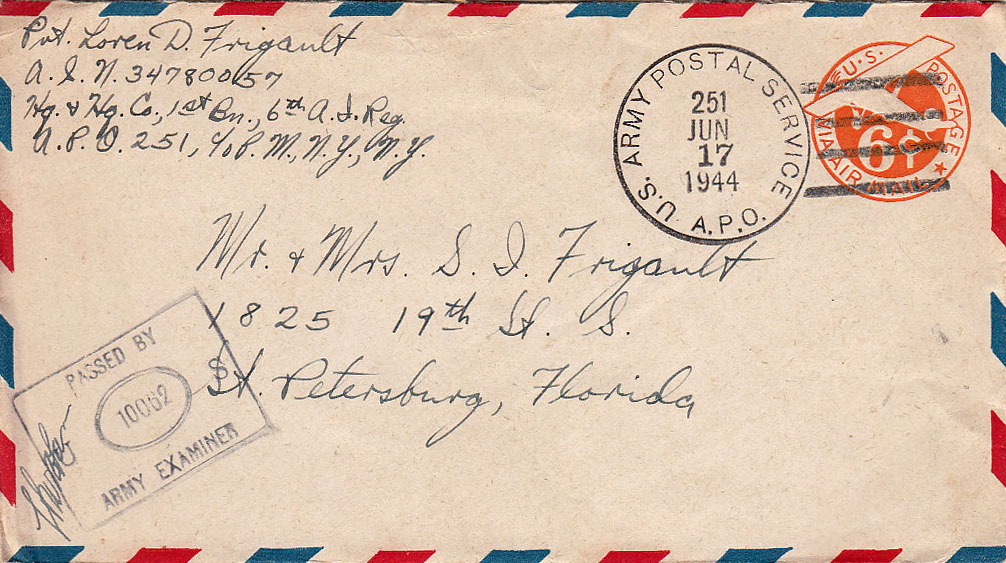 Pvt. Loren D. Frigault
A.S.N. 34780057
Hq. & Hq. Co., 1st Bn., 6th A.I. Reg.
A.P.O. 251, c/o P.M., N.Y., N.Y.
U.S. ARMY POSTAL SERVICE
251
JUN
17
1944
A.P.O.
U.S. POSTAGE
6¢
VIA AIR MAIL
Mr. & Mrs. S. I. Frigault
1825 19th St. S.
St. Petersburg, Florida
PASSED BY
10062
ARMY EXAMINER